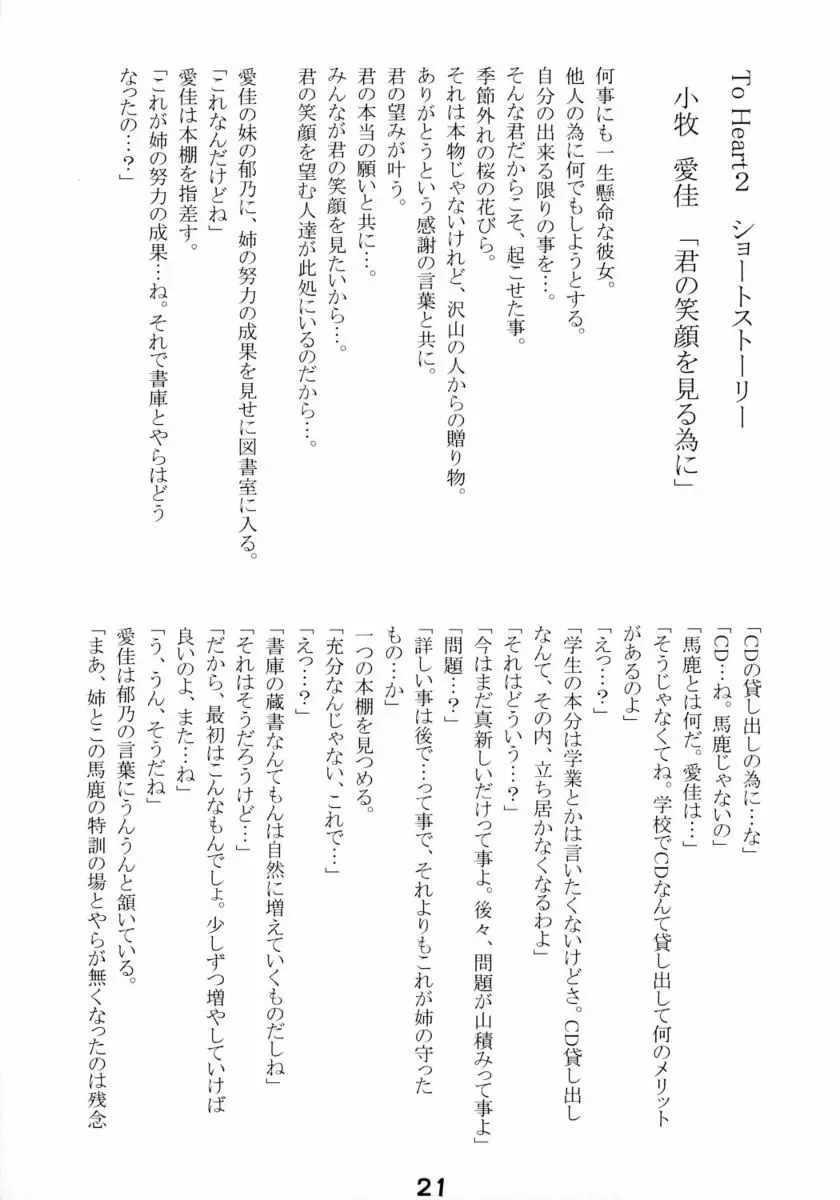 To Heart2　ショートストーリー
小牧　愛佳　「君の笑顔を見る為に」
何事にも一生懸命な彼女。
他人の為に何でもしようとする。
自分の出来る限りの事を…。
そんな君だからこそ、起こせた事。
季節外れの桜の花びら。
それは本物じゃないけれど、沢山の人からの贈り物。
ありがとうという感謝の言葉と共に。
君の望みが叶う。
君の本当の願いと共に…。
みんなが君の笑顔を見たいから…。
君の笑顔を望む人達が此処にいるのだから…。
愛佳の妹の郁乃に、姉の努力の成果を見せに図書室に入る。
「これなんだけどね」
愛佳は本棚を指差す。
「これが姉の努力の成果…ね。それで書庫とやらはどう
なったの…？」
「CDの貸し出しの為に…な」
「CD…ね。馬鹿じゃないの」
「馬鹿とは何だ。愛佳は…」
「そうじゃなくてね。学校でCDなんて貸し出して何のメリット
があるのよ」
「えっ…？」
「学生の本分は学業とかは言いたくないけどさ。CD貸し出し
なんて、その内、立ち居かなくなるわよ」
「それはどういう…？」
「今はまだ真新しいだけって事よ。後々、問題が山積みって事よ」
「問題…？」
「詳しい事は後で…って事で、それよりもこれが姉の守った
もの…か」
一つの本棚を見つめる。
「充分なんじゃない、これで…」
「えっ…？」
「書庫の蔵書なんてもんは自然に増えていくものだしね」
「それはそうだろうけど…」
「だから、最初はこんなもんでしょ。少しずつ増やしていけば
良いのよ、また…ね」
「う、うん、そうだね」
愛佳は郁乃の言葉にうんうんと頷いている。
「まあ、姉とこの馬鹿の特訓の場とやらが無くなったのは残念
21